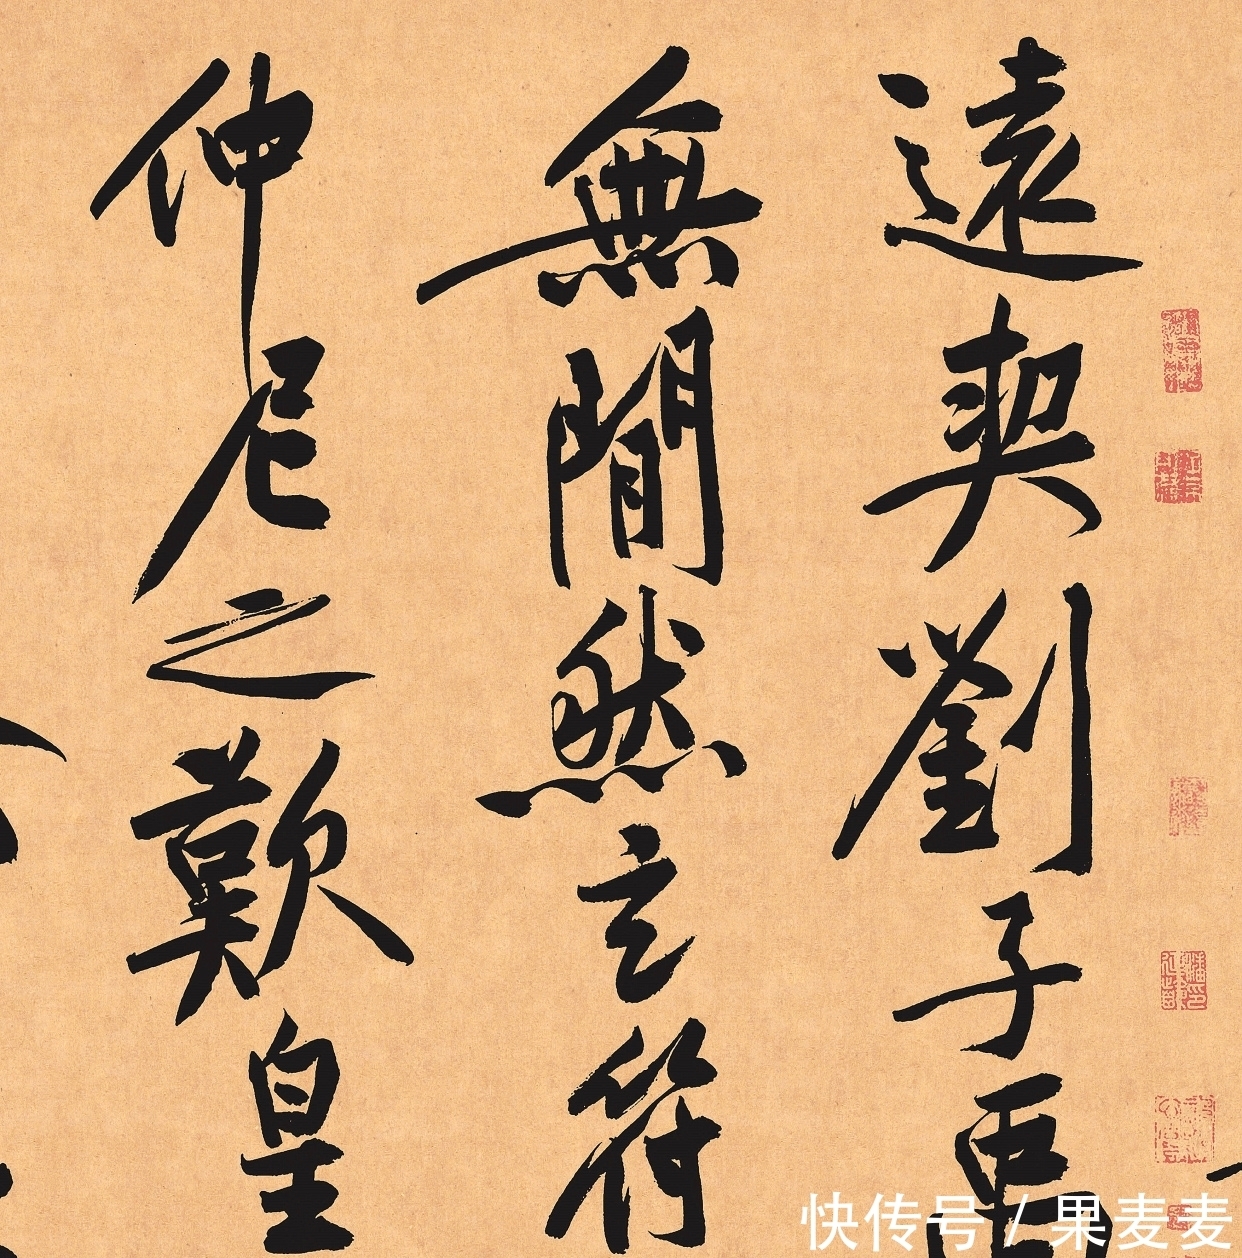 遠契劉子
無間然玄符
仲尼之歎皇
快传号 / 果麦麦